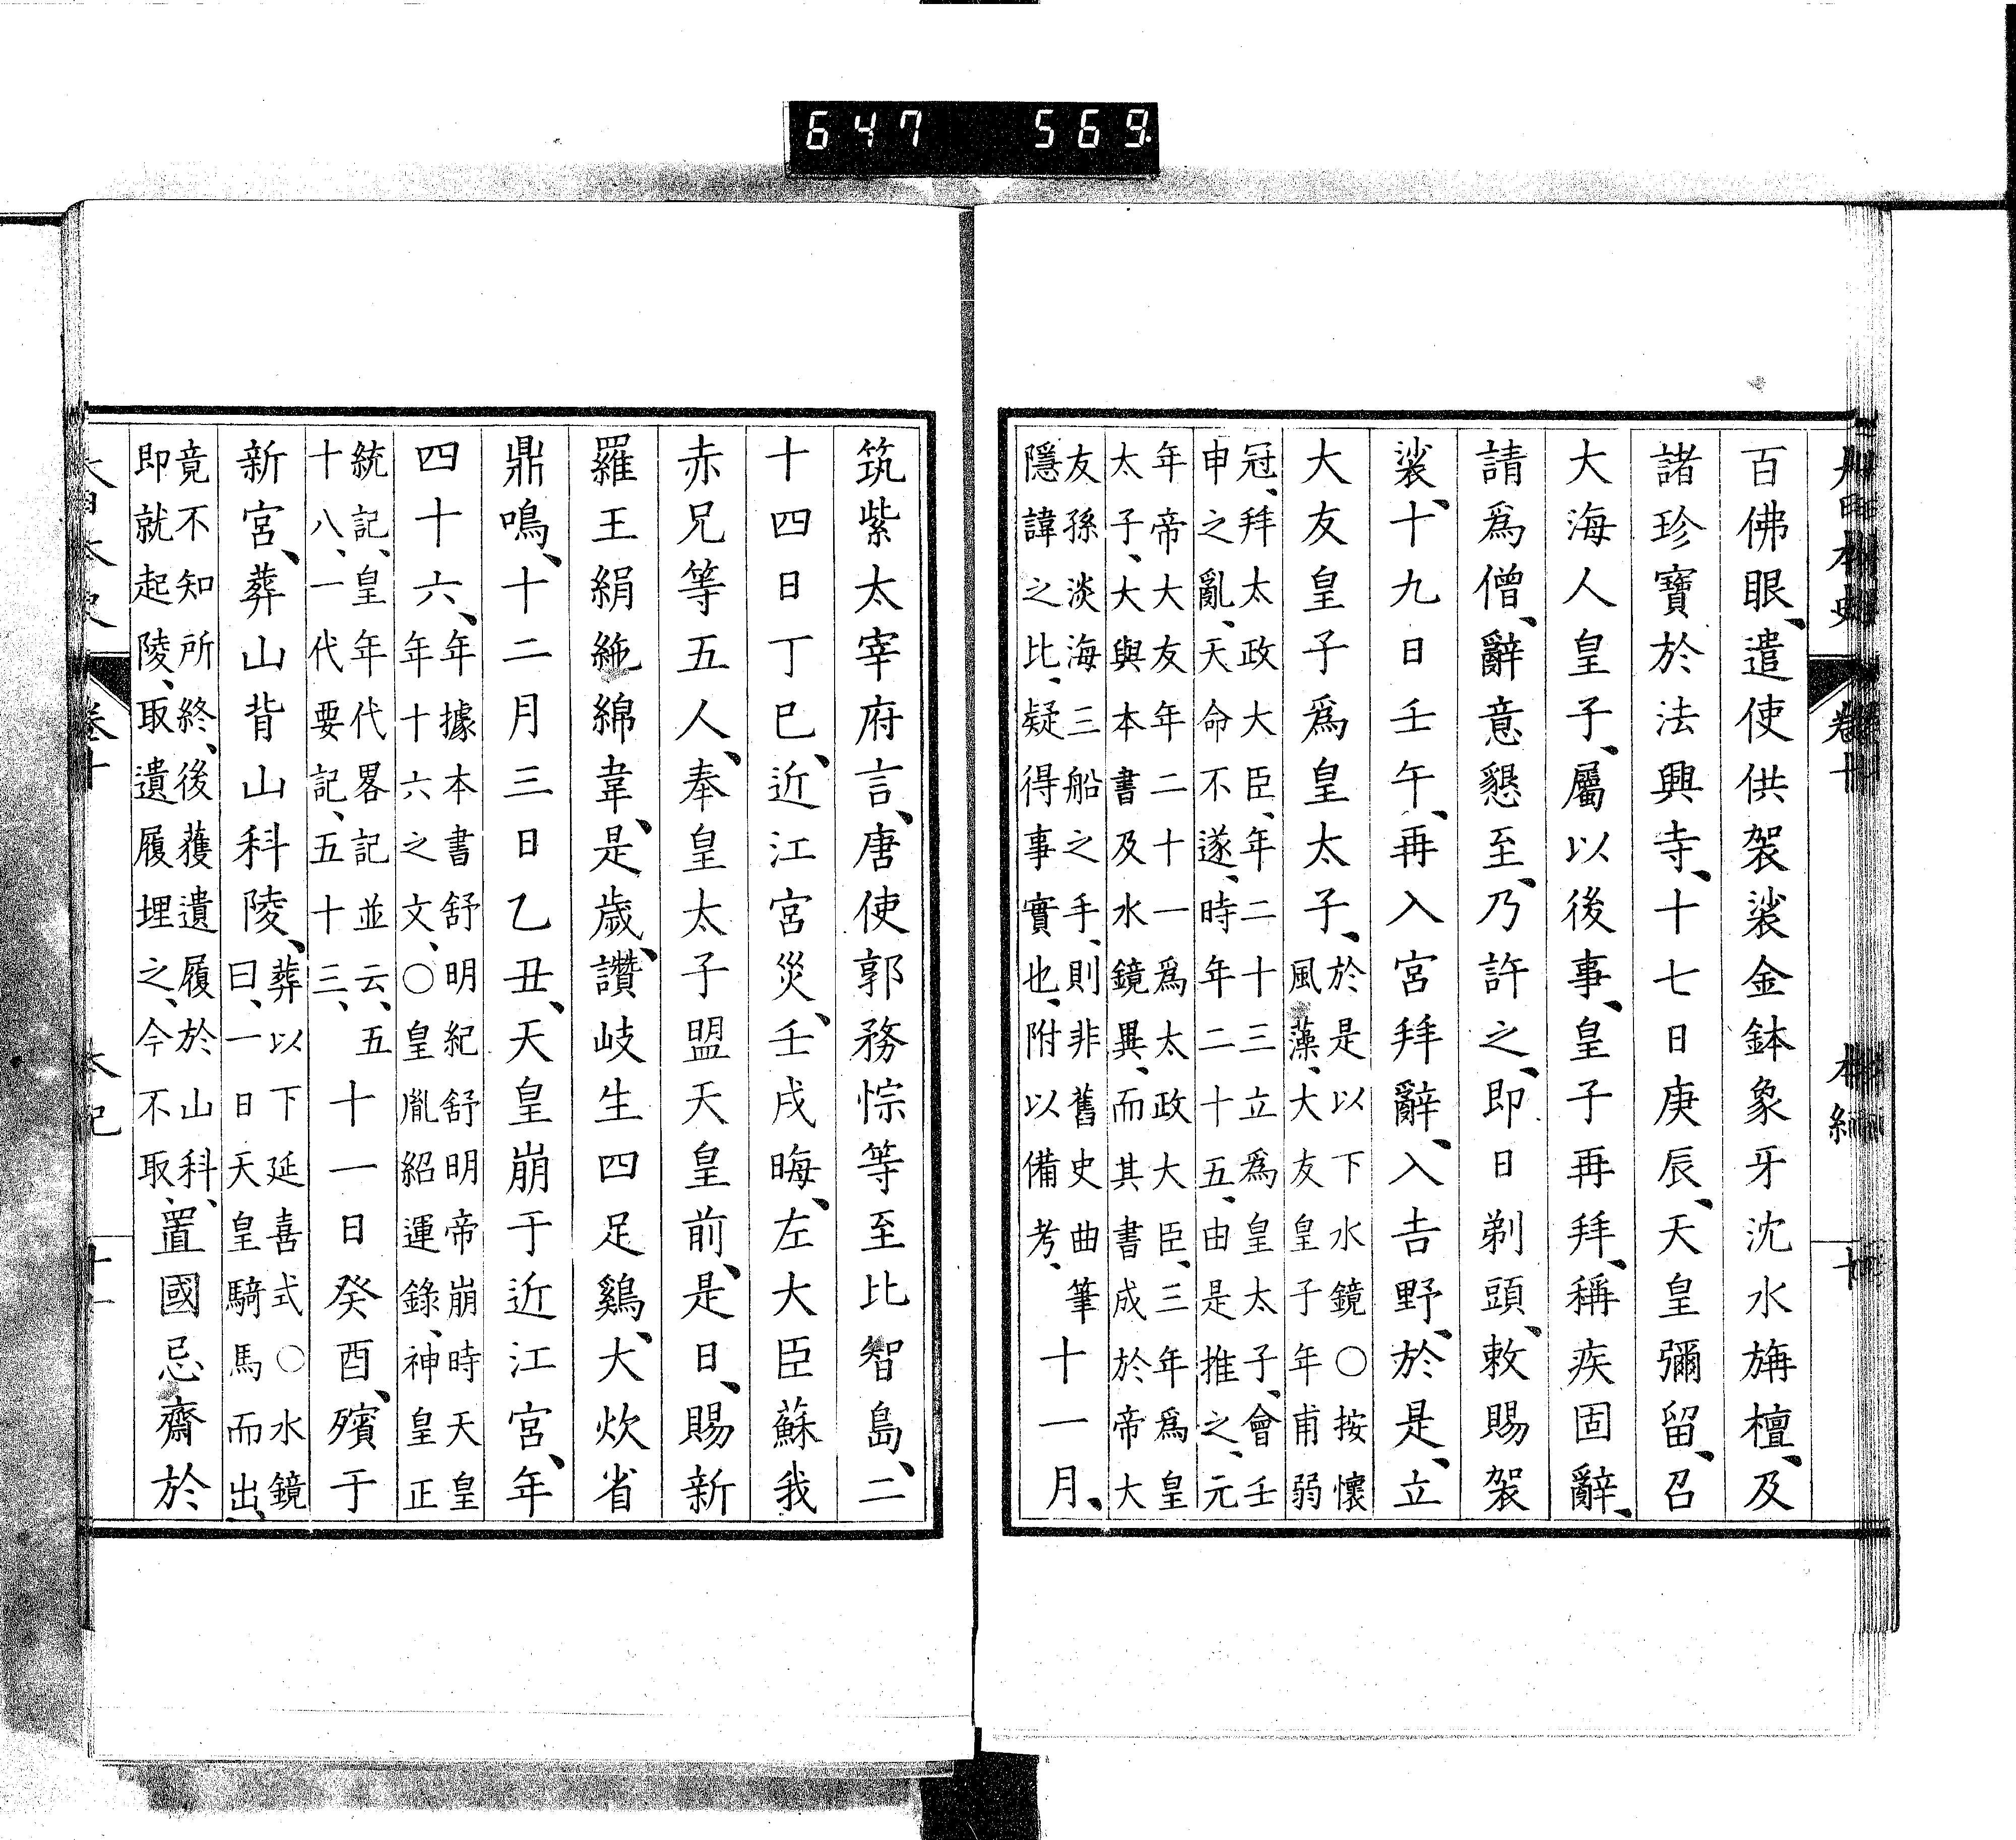 647 569
百佛眼、遣使供袈裟金鉢象牙沈水旃檀、及
諸珍寶於法興寺、十七日庚辰、天皇彌留、召
大海人皇子、屬以後事、皇子再拜、稱疾固辭、
請爲僧、辭意懇至、乃許之、即日剃頭、敕賜袈
裟、十九日壬午、再入宮拜辭、入吉野、於是、立
大友皇子爲皇太子、於是以下水鏡○按懷
風藻、大友皇子年甫弱
冠、拜太政大臣、年二十三立爲皇太子、會壬
申之亂、天命不遂、時年二十五、由是推之、元
年帝大友年二十一爲太政大臣、三年爲皇
太子、大與本書及水鏡異、而其書成於帝大
友孫淡海三船之手、則非舊史曲筆
隱諱之比、疑得事實也、附以備考、十一月、
筑紫太宰府言、唐使郭務悰等至比智島、二
十四日丁巳、近江宮災、壬戌晦、左大臣蘇我
赤兄等五人、奉皇太子盟天皇前、是日、賜新
羅王絹絁綿韋、是歲、讚岐生四足鷄、大炊省
鼎鳴、十二月三日乙丑、天皇崩于近江宮、年
四十六、年據本書舒明紀舒明帝崩時天皇
年十六之文、○皇胤紹運錄、神皇正
統記、皇年代畧記並云、五
十八、一代要記、五十三、十一日癸酉、殯于
新宮、葬山背山科陵、葬以下延喜式○水鏡
曰、一日天皇騎馬而出、
竟不知所終、後獲遺履於山科、
即就起陵、取遺履埋之、今不取、置國忌齋於
卷十